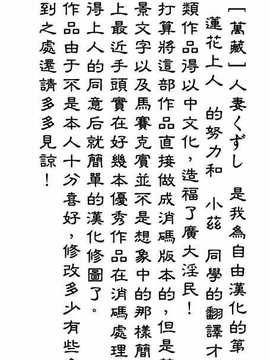 ［萬藏］人妻くずし 是我為自由漢化的第
蓮花上人 的努力和 小茲 同學的翻譯才
類作品得以中文化，造福了廣大淫民！
打算將這部作品直接做成消碼版本的，但是
景文字以及馬賽克賓並不是想象中的那樣簡
上最近手頭實在好幾本優秀作品在消碼處理
得上人的同意后就簡單的漢化修圖了。
作品由于不是本人十分喜好，修改多少有些
到之處還請多多見諒！